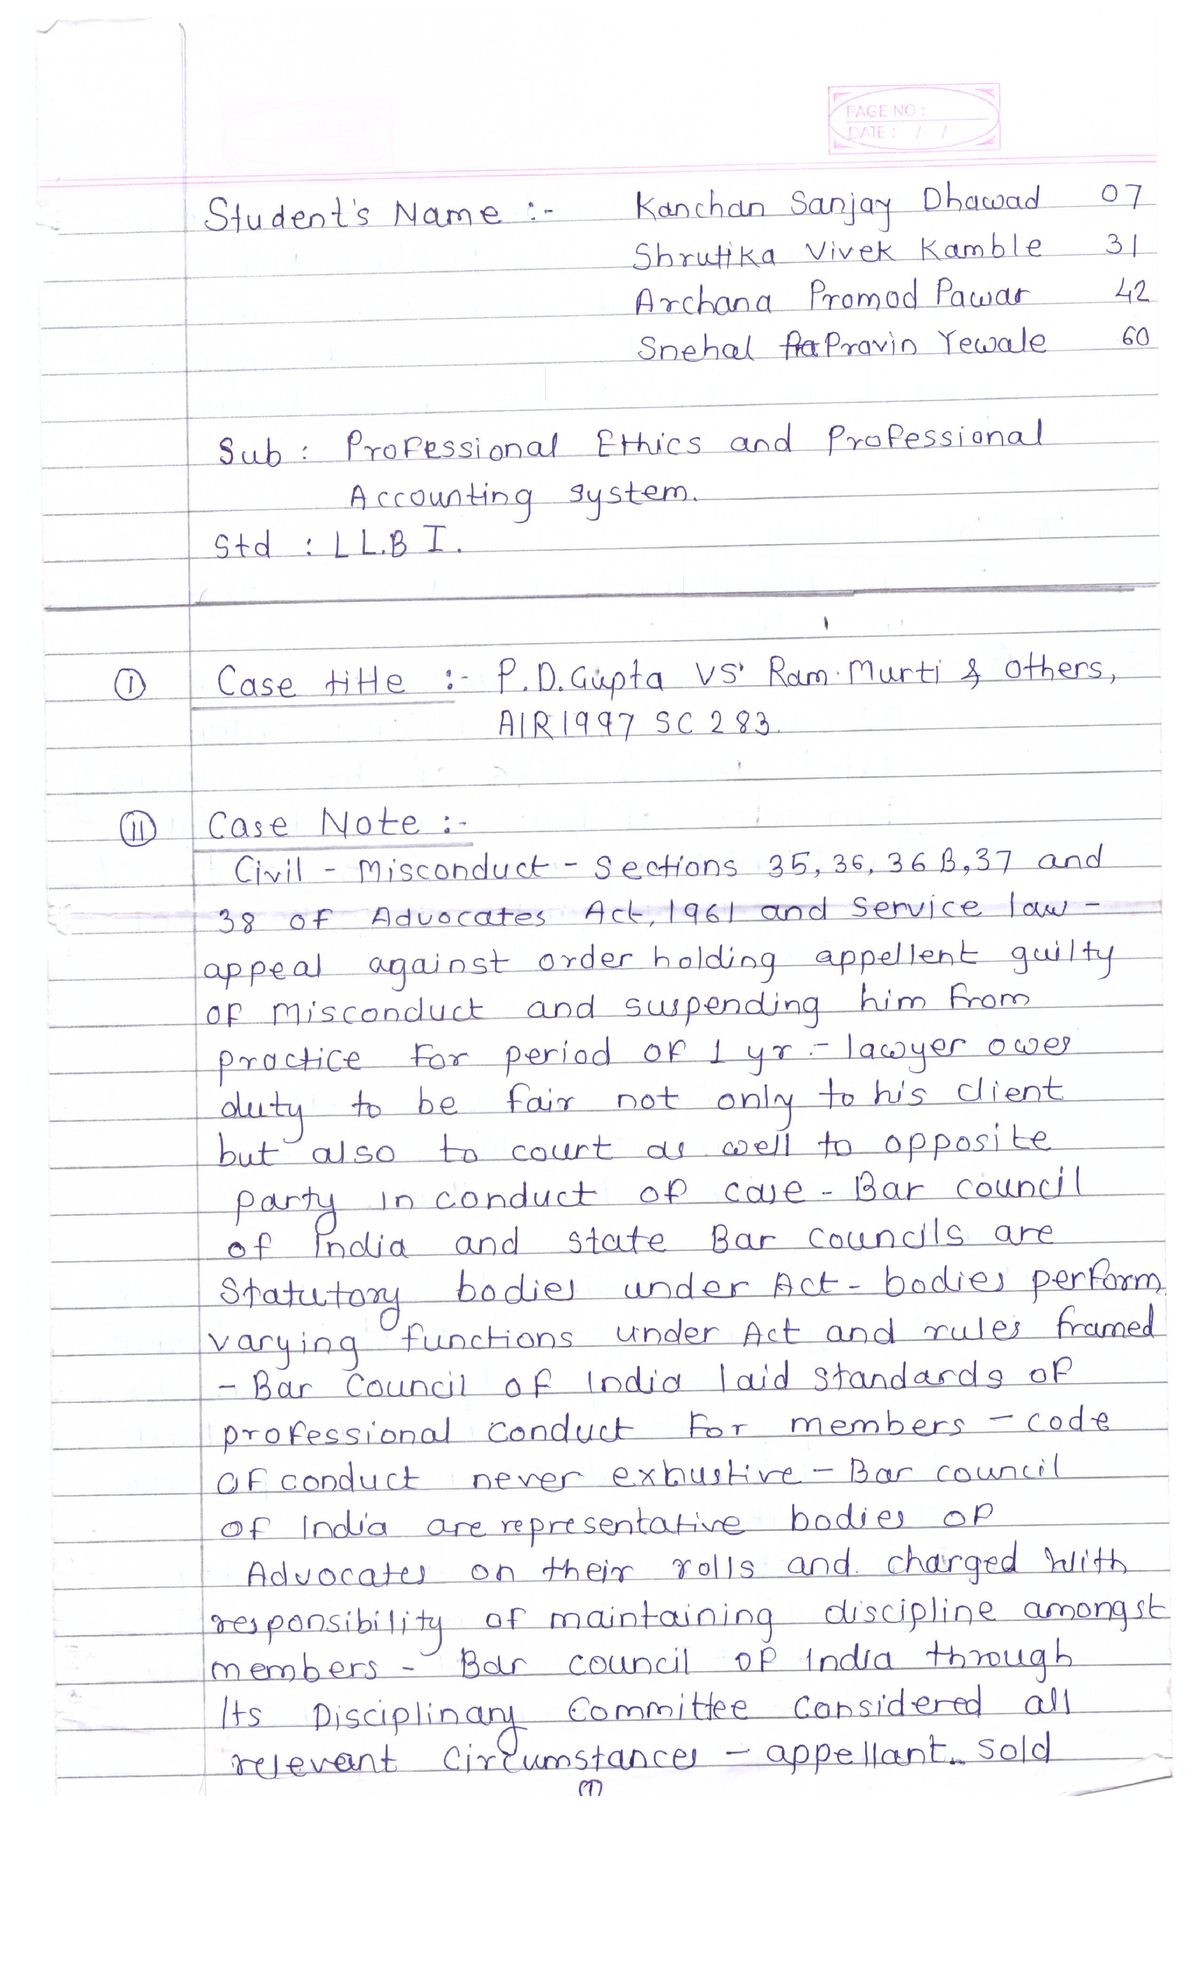 PAGE NO :
DATE : / /
Student's Name :- Kanchan Sanjay Dhawad 07
Shrutika Vivek Kamble 31
Archana Promod Pawar 42
Snehal Pravin Yewale 60
Sub : Professional Ethics and Professional
Accounting system.
Std : LL.B I.
I Case title :- P.D. Gupta VS. Ram Murti & others,
AIR 1997 SC 283.
II Case Note :-
Civil - Misconduct - Sections 35, 36, 36 B, 37 and
38 of Advocates Act, 1961 and Service law -
appeal against order holding appellent guilty
of misconduct and suspending him from
practice for period of 1 yr :- lawyer owes
duty to be fair not only to his client
but also to court as well to opposite
party in conduct of case - Bar council
of India and state Bar councils are
Statutory bodies under Act - bodies perform
varying functions under Act and rules framed
- Bar Council of India laid standards of
professional conduct for members - code
of conduct never exhustive - Bar council
of India are representative bodies of
Advocates on their rolls and charged with
responsibility of maintaining discipline amongst
members - Bar council of India through
Its Disciplinary Committee considered all
relevent Circumstances - appellant sold
(1)